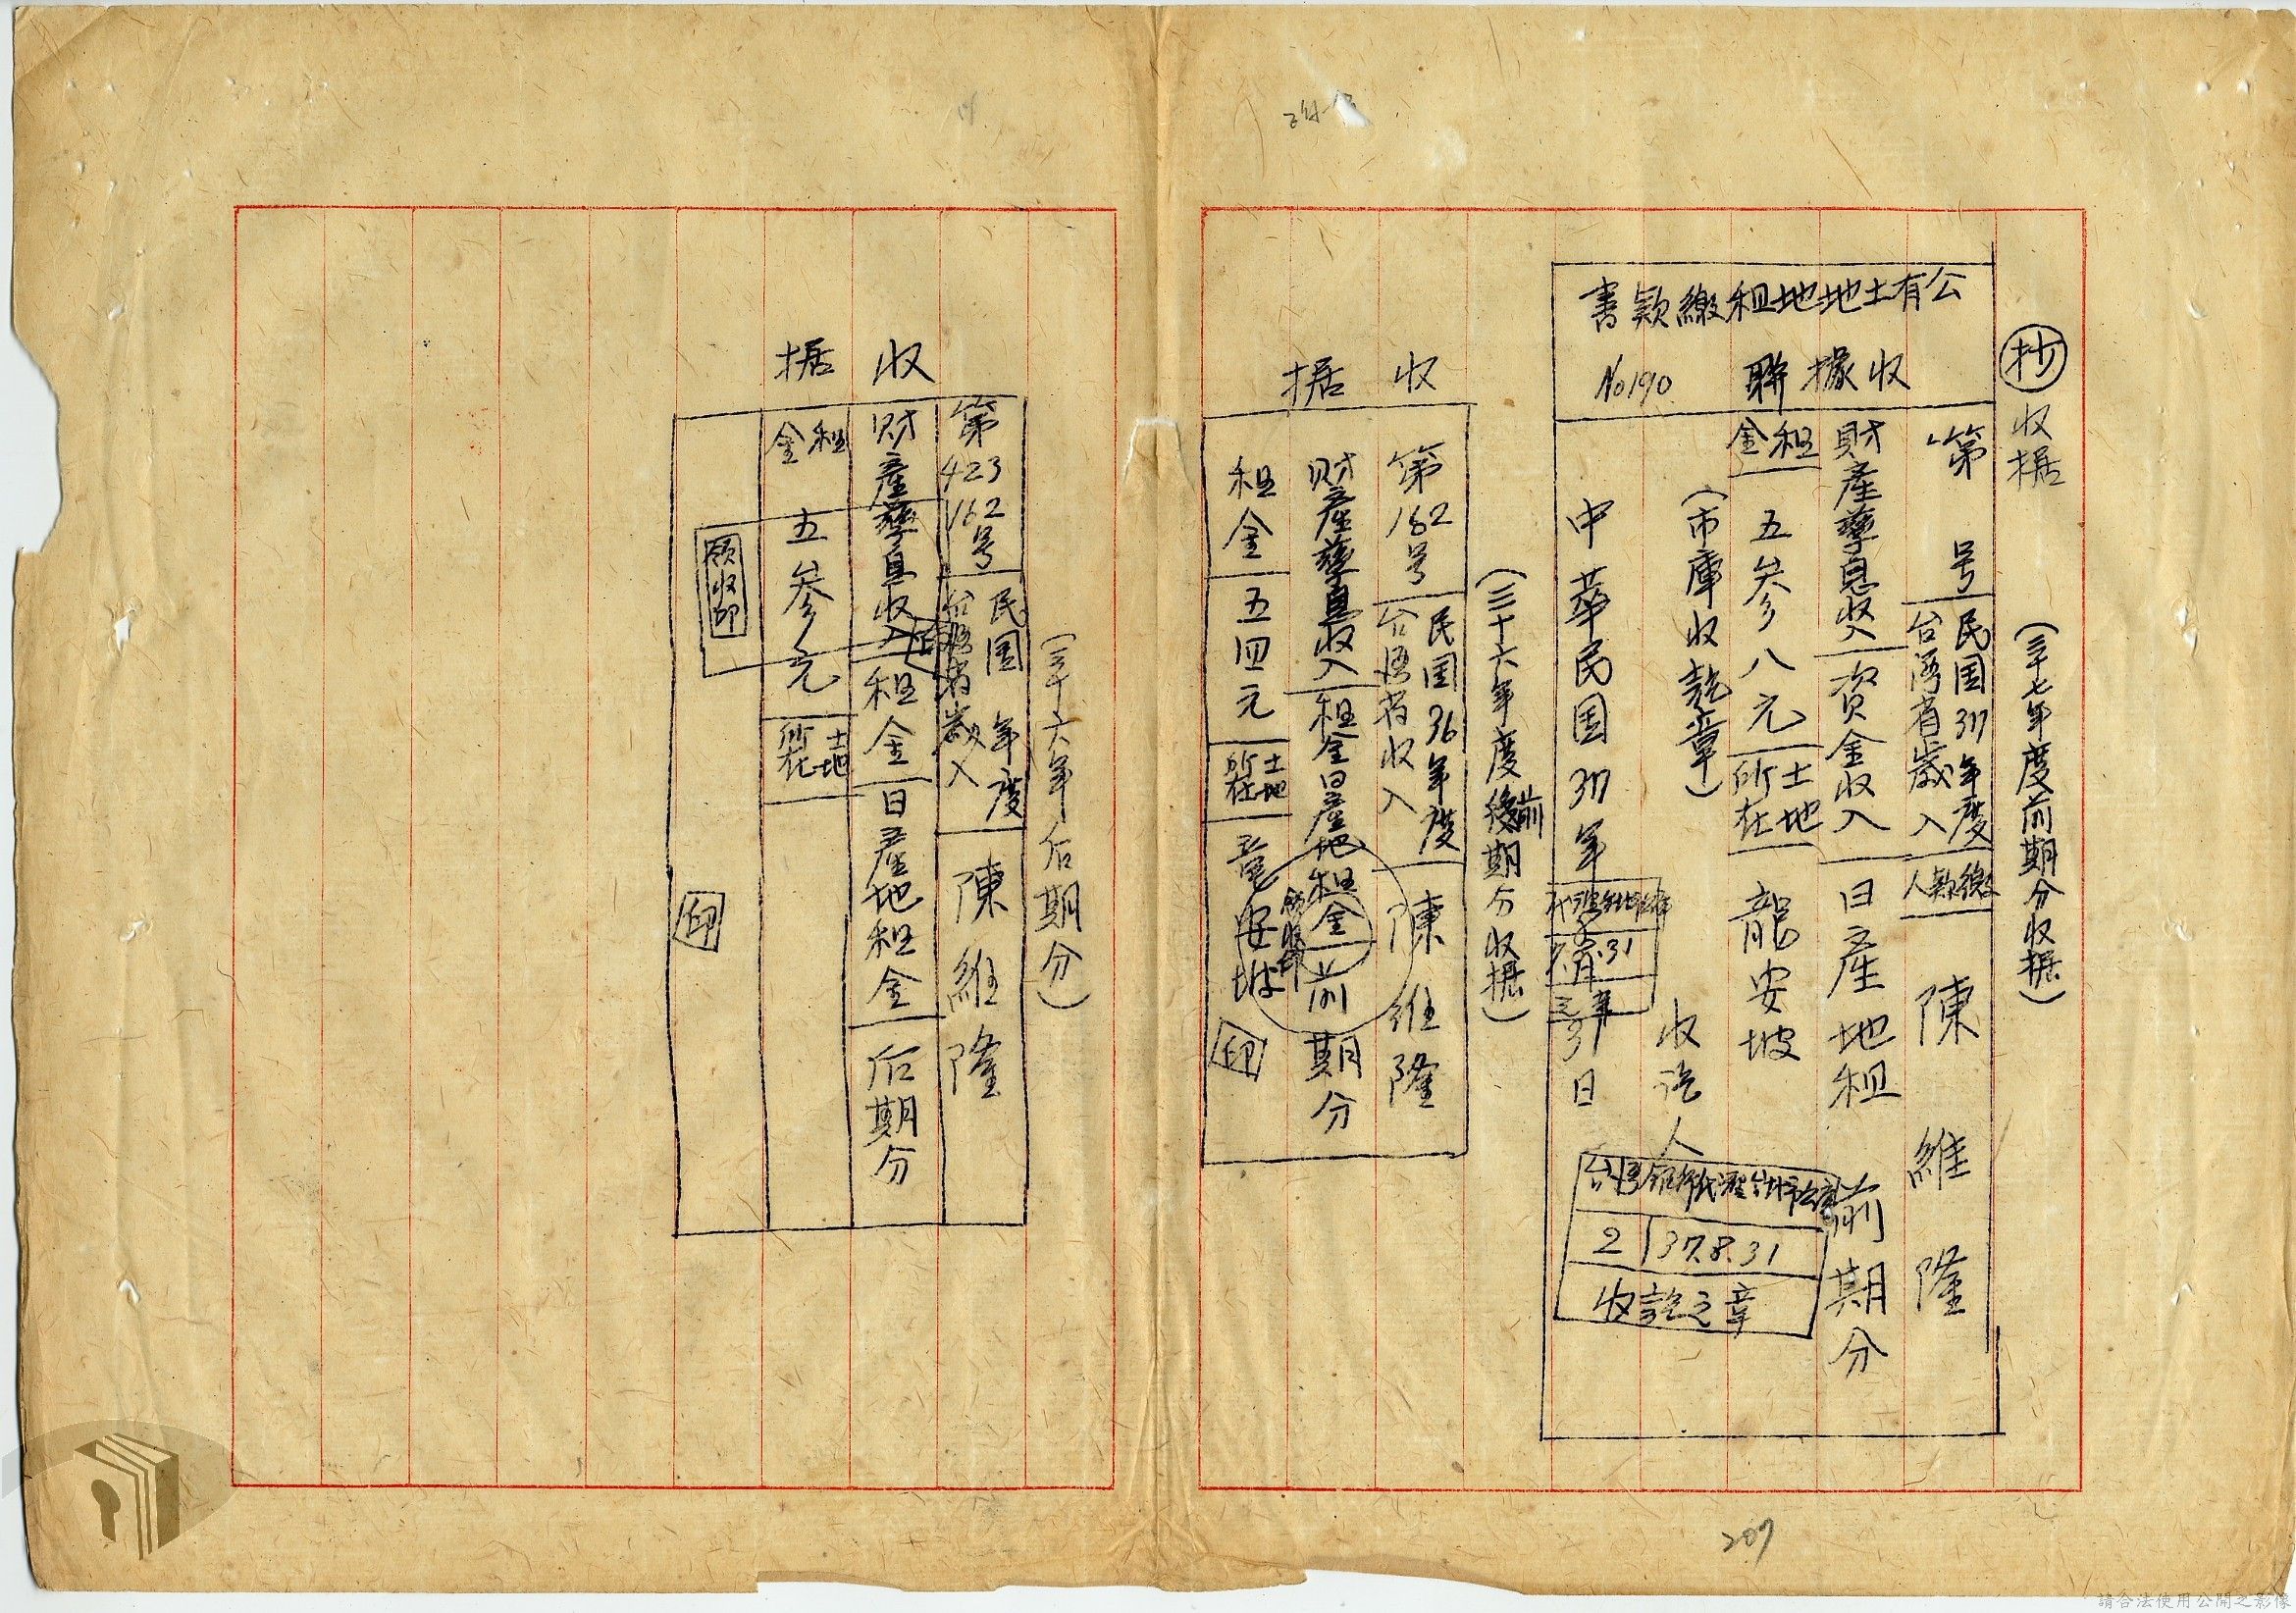 抄 收据
(三十七年度前期分收据)
公有土地地租繳款書
收據聯
No190
第 号
民国37年度
台湾省歲入
繳款人
陳維隆
財產孳息收入
资金收入
日產地租
前期分
租金
五叁八元
土地
所在
龍安坡
(市庫收訖章)
收訖人
中華民国37年
31日
37.8.31
2
收訖之章
(三十六年度前
後期分收据)
收据
第162号
民国36年度
收入
陳維隆
财產孳息收入
租金
日產地租金
前期分
租金
五四元
土地
所在
龍安坡
印
(三十六年后期分)
收据
第423
162号
民国 年度
台湾省歲入
陳維隆
财產孳息收入
租金
日產地租金
后期分
租金
五叁元
土地
所在
領收印
印
207
請合法使用公開之影像